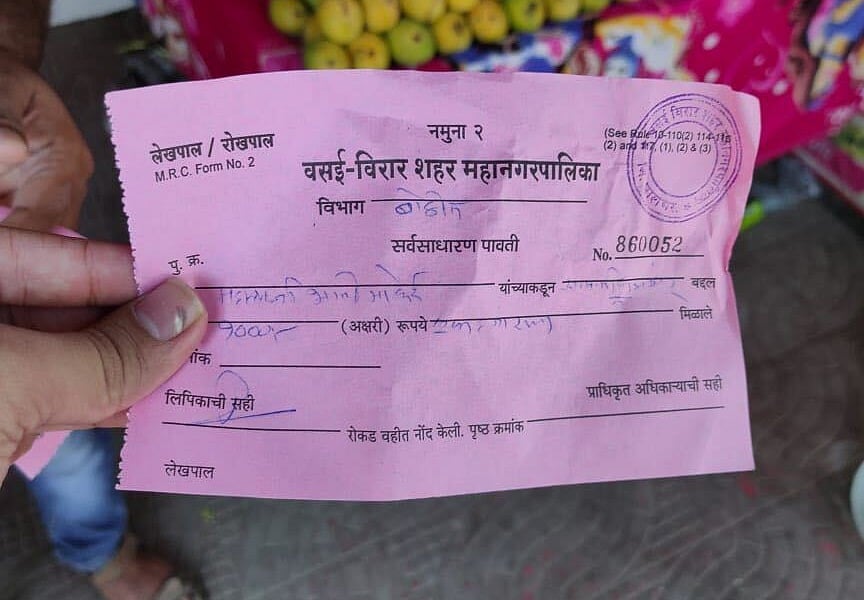 लेखपाल / रोखपाल
M.R.C. Form No. 2
नमुना २
(See Rule 10-110(2) 114-116
(2) and 117, (1), (2) & (3)
वसई-विरार शहर महानगरपालिका
विभाग
सर्वसाधारण पावती
पु. क्र.
No. 860052
यांच्याकडून बद्दल
१000/- (अक्षरी) रूपये मिळाले
ांक
लिपिकाची सही
प्राधिकृत अधिकाऱ्याची सही
रोकड वहीत नोंद केली. पृष्ठ क्रमांक
लेखपाल